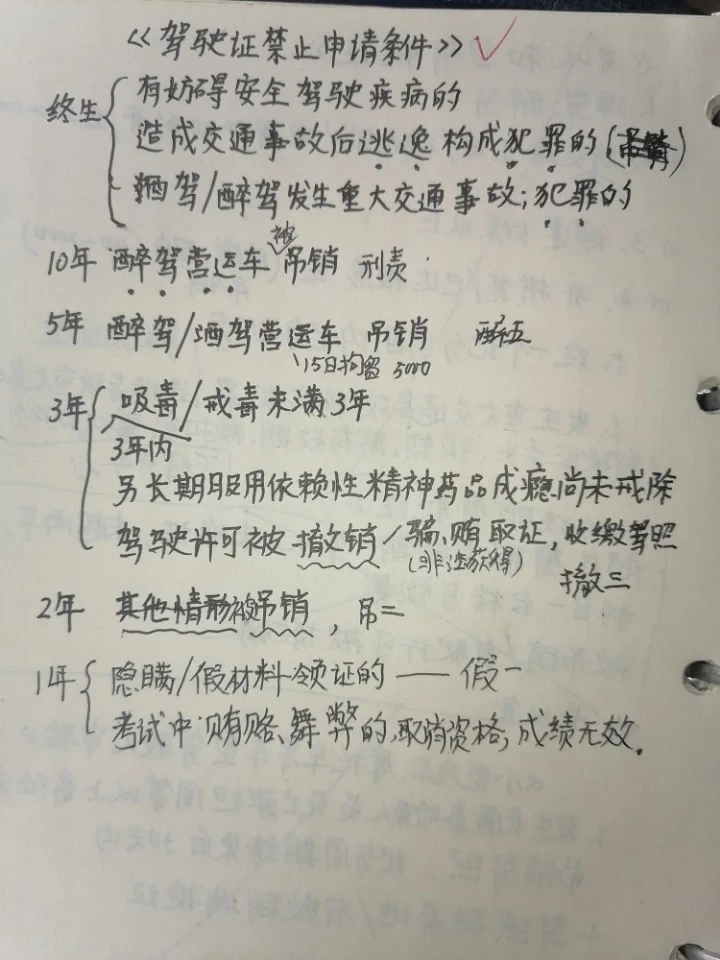 《驾驶证禁止申请条件》✓
终生
有妨碍安全驾驶疾病的
造成交通事故后逃逸构成犯罪的(吊销)
酒驾/醉驾发生重大交通事故;犯罪的
10年 醉驾营运车被吊销 刑责
5年 醉驾/酒驾营运车 吊销 醉五
15日拘留 5000
3年
吸毒/戒毒未满3年
3年内
另长期服用依赖性精神药品成瘾尚未戒除
驾驶许可被撤销/骗、贿取证,收缴驾照
(非法获得) 撤三
2年 其他情形被吊销,吊二
1年
隐瞒/假材料领证的——假一
考试中贿赂、舞弊的,取消资格,成绩无效.